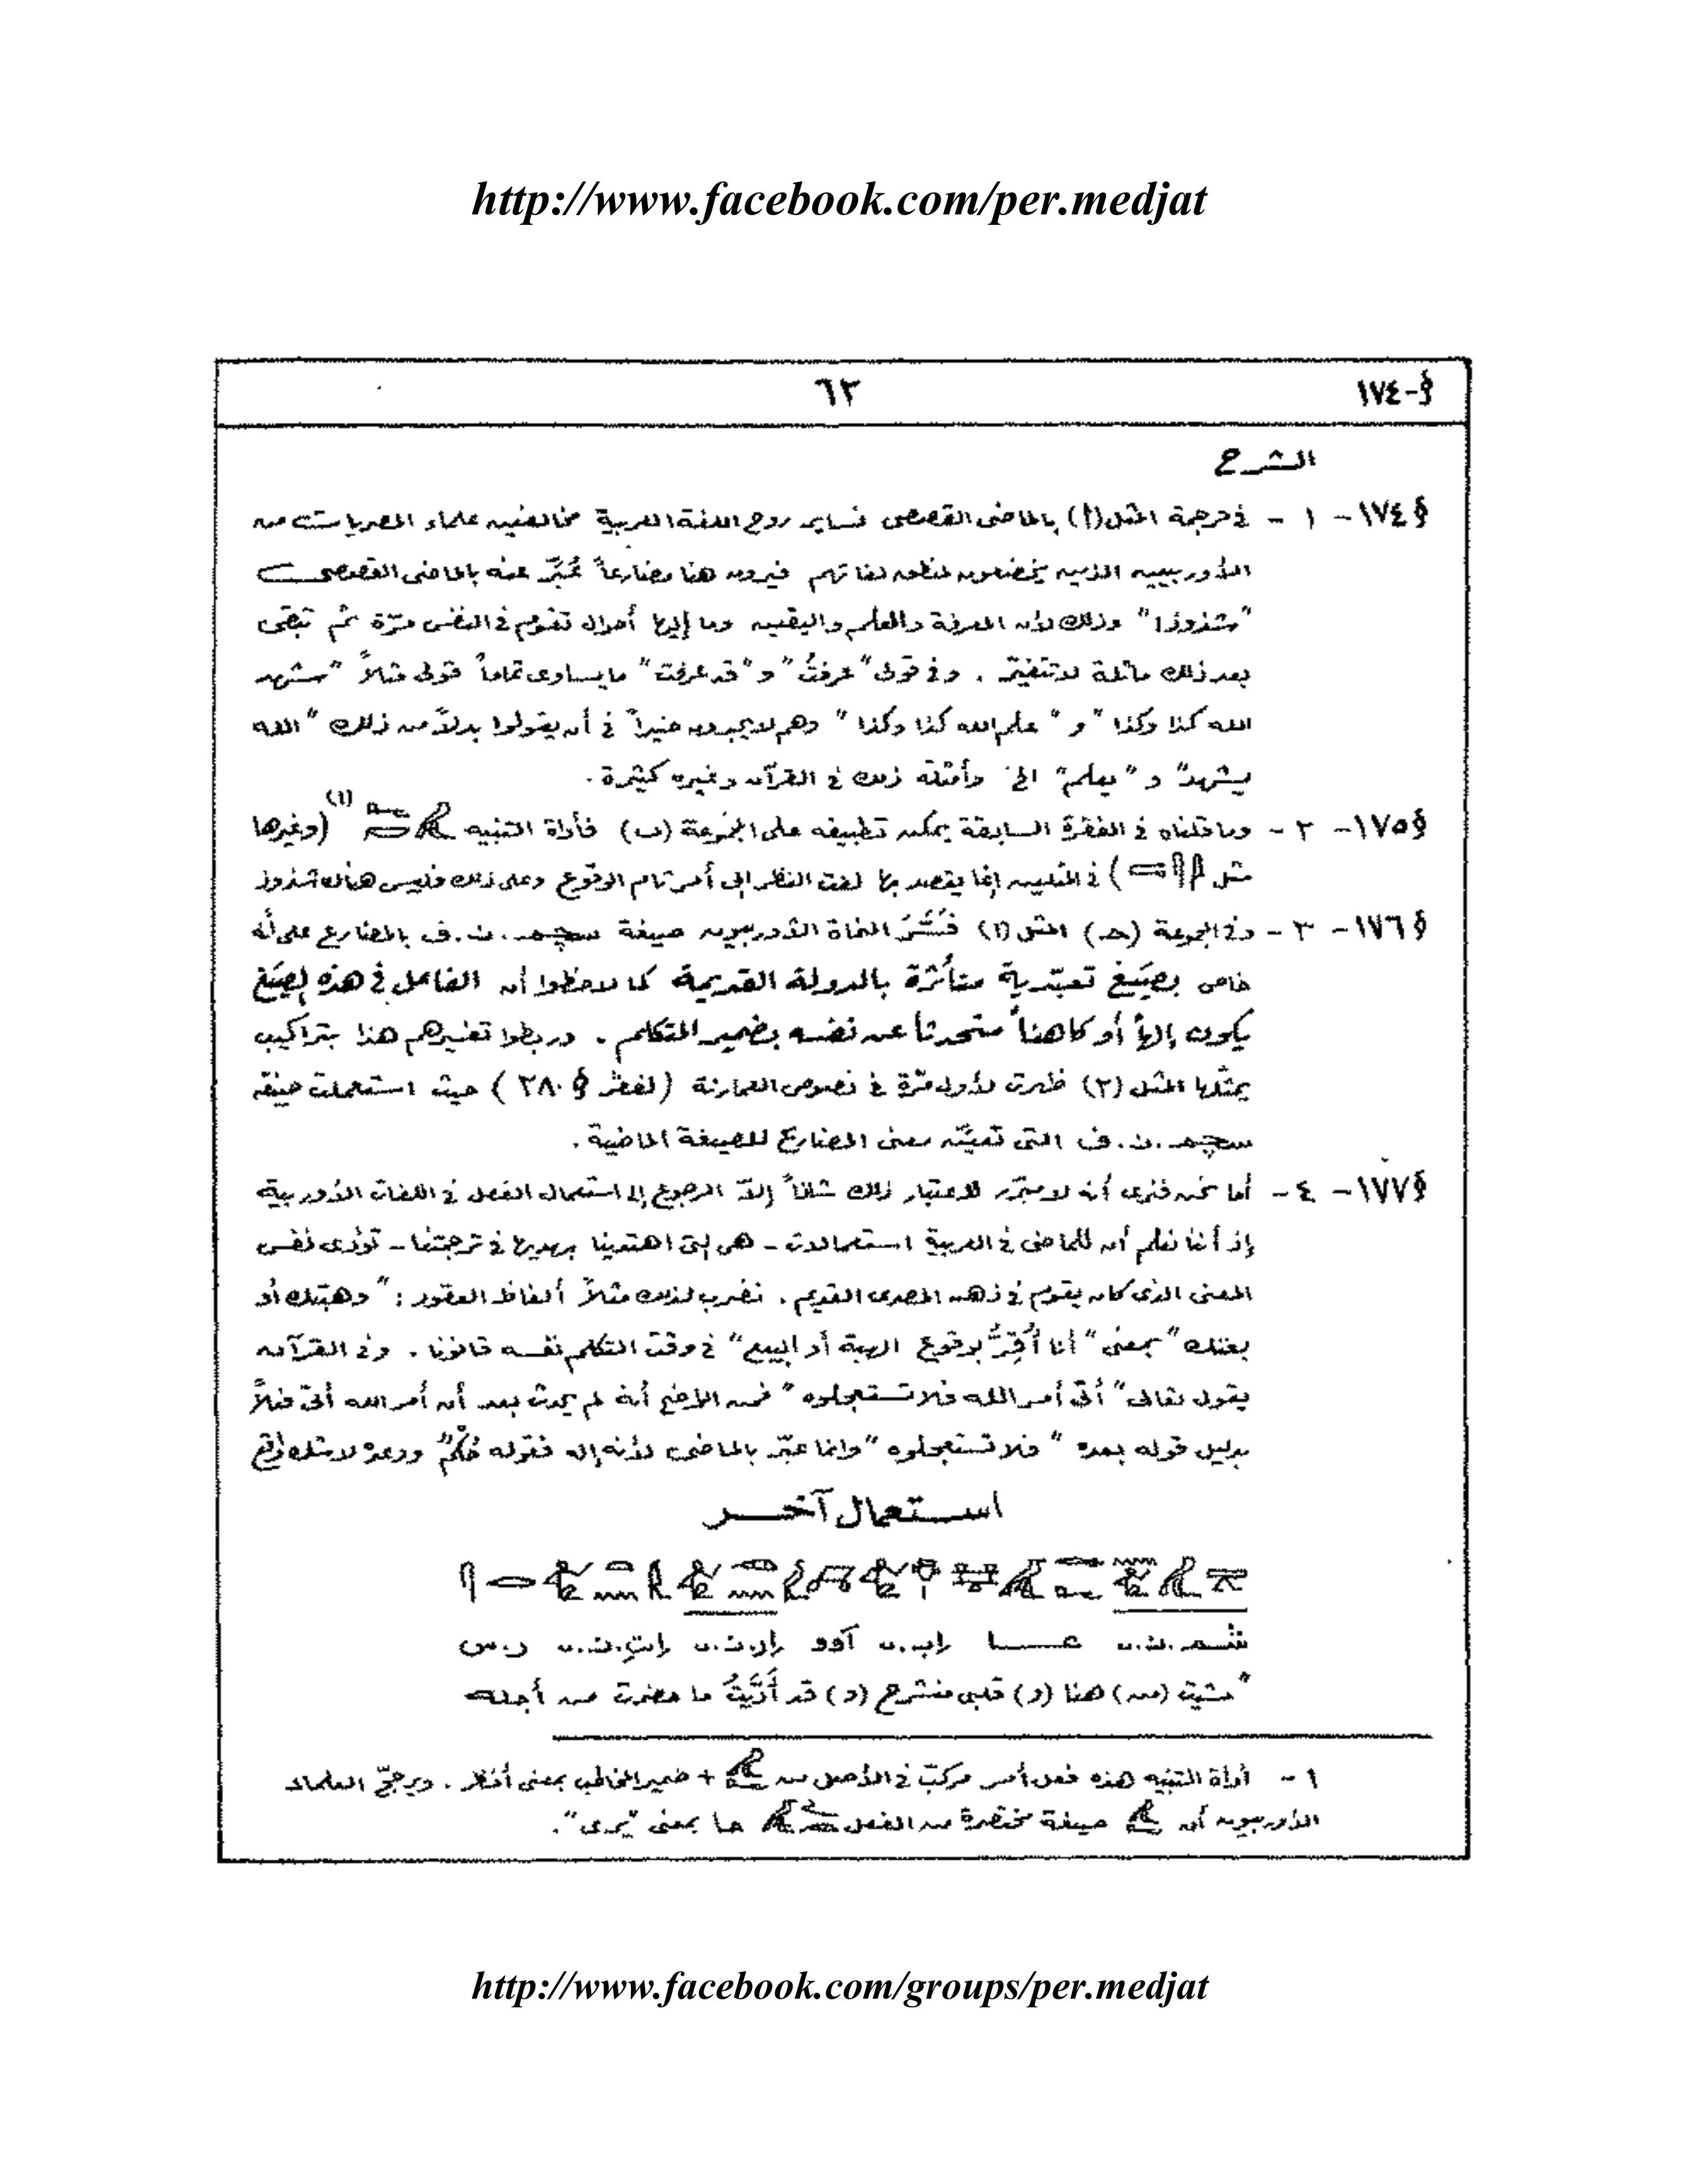 http://www.facebook.com/per.medjat
§-١٧٤ ٦٢
الشرح
§١٧٤- ١ - في ترجمة المثل (أ) بالماضى القصصى نساير روح اللغة العربية مخالفين علماء المصريات من
الأوربيين الذين يخضعون لمنطق لغاتهم فيرون هنا مضارعاً عُبِّر عنه بالماضى القصصى
"شذوذا" وذلك لأن المعرفة والعلم واليقين وما إليها أحوال تقوم في النفس مرّة ثم تبقى
بعد ذلك ماثلة لا تتغيّر . وفي قولى "عرفتُ" و "قد عرفت" ما يساوى تماماً قولى مثلاً "شهد
الله كذا وكذا" و "علم الله كذا وكذا" وهم لا يجدون ضيراً في أن يقولوا بدلاً من ذلك "الله
يشهد" و "يعلم" الخ وأمثلة ذلك في القرآن وغيره كثيرة .
§١٧٥- ٢ - وما قلناه في الفقرة السابقة يمكن تطبيقه على المجموعة (ب) فأداة التنبيه (١) (وغيرها
مثل ) في المثلين إنما يقصد بها لفت النظر إلى أمر تام الوقوع وعلى ذلك فليس هناك شذوذ
§١٧٦- ٣ - وفي المجموعة (حـ) المثل (١) فَسَّرَ النحاة الأوربيون صيغة سچم.ن.ف بالمضارع على أنه
خاص بصِيَغ تعبّدية متأثرة بالدولة القديمة كما لاحظوا أن الفاعل في هذه الصِيَغ
يكون إلهاً أو كاهناً متحدثاً عن نفسه بضمير المتكلم . وربطوا تفسيرهم هذا بتراكيب
يمثّلها المثل (٢) ظهرت لأول مرّة في نصوص العمارنة (انظر § ٢٨٠) حيث استعملت صيغة
سچم.ن.ف التى تعيّن معنى المضارع للصيغة الماضية .
§١٧٧- ٤ - أما نحن فنرى أنه لا مبرّر لاعتبار ذلك شاذاً إلاّ الرجوع إلى استعمال الفعل في اللغات الأوربية
إذ أننا نعلم أن للماضى في العربية استعمالات - هى التى اهتدينا بهديها في ترجمتنا - تؤدى نفس
المعنى الذى كان يقوم في ذهن المصرى القديم . نضرب لذلك مثلاً ألفاظ العقود : "وهبتك أو
بعتك" بمعنى "أنا أُقِرُّ بوقوع الهبة أو البيع" في وقت التكلم نفسه قانونا . وفي القرآن
يقول تعالى "أتى أمر الله فلا تستعجلوه" فمن الواضح أنه لم يحدث بعد أن أمر الله أتى فعلاً
بدليل قوله بعده "فلا تستعجلوه" وانما عبّر بالماضى لأنه إله فقوله حُكْمٌ ووعده لا شك واقع
استعمال آخر
شم.ن.ى عــا إب.ى آوو إر.ن.ى إت.ن.ى ر.س
"مشيت (من) هنا (و) قلبى منشرح (و) قد أدّيتُ ما حضرت من أجله
١ - أداة التنبيه هذه فعل أمر مركب في الأصل من + ضمير المخاطب بمعنى أنظر . ويرجح العلماء
الأوربيون أن صيغة مختصرة من الفعل ما بمعنى "يرى" .
http://www.facebook.com/groups/per.medjat